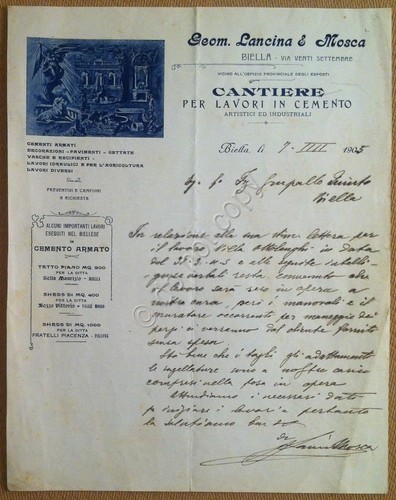 Geom. Lancina & Mosca
BIELLA - VIA VENTI SETTEMBRE
VICINO ALL'OSPIZIO PROVINCIALE DEGLI ESPOSTI
CANTIERE
PER LAVORI IN CEMENTO
ARTISTICI ED INDUSTRIALI
CEMENTI ARMATI
DECORAZIONI - PAVIMENTI - GETTATE
VASCHE E RECIPIENTI
LAVORI IDRAULICI E PER L'AGRICOLTURA
LAVORI DIVERSI
PREVENTIVI E CAMPIONI
A RICHIESTA
ALCUNI IMPORTANTI LAVORI
ESEGUITI NEL BIELLESE
IN
CEMENTO ARMATO
TETTO PIANO MQ. 900
PER LA DITTA
Sella Maurizio - BIELLA
SHEDS DI MQ. 400
PER LA DITTA
SHEDS DI MQ. 1000
PER LA DITTA
FRATELLI PIACENZA - POLLONE
Biella, li 7. 1905
Biella
In relazione alla sua lettera per
il lavoro Villa Ottolenghi in data
del e alle
verbali resta convenuto che
il lavoro sarà in opera a
nostra cura, però i manovali e il
muratore occorrenti per maneggio dei
pezzi ci verranno dal cliente forniti
senza spesa
Sta bene che i tagli gli adattamenti
le sono a nostro carico
compresi nella posa in opera
Attendiamo i necessari dati
per iniziare i lavori e pertanto
la salutiamo
Mosca
copyright